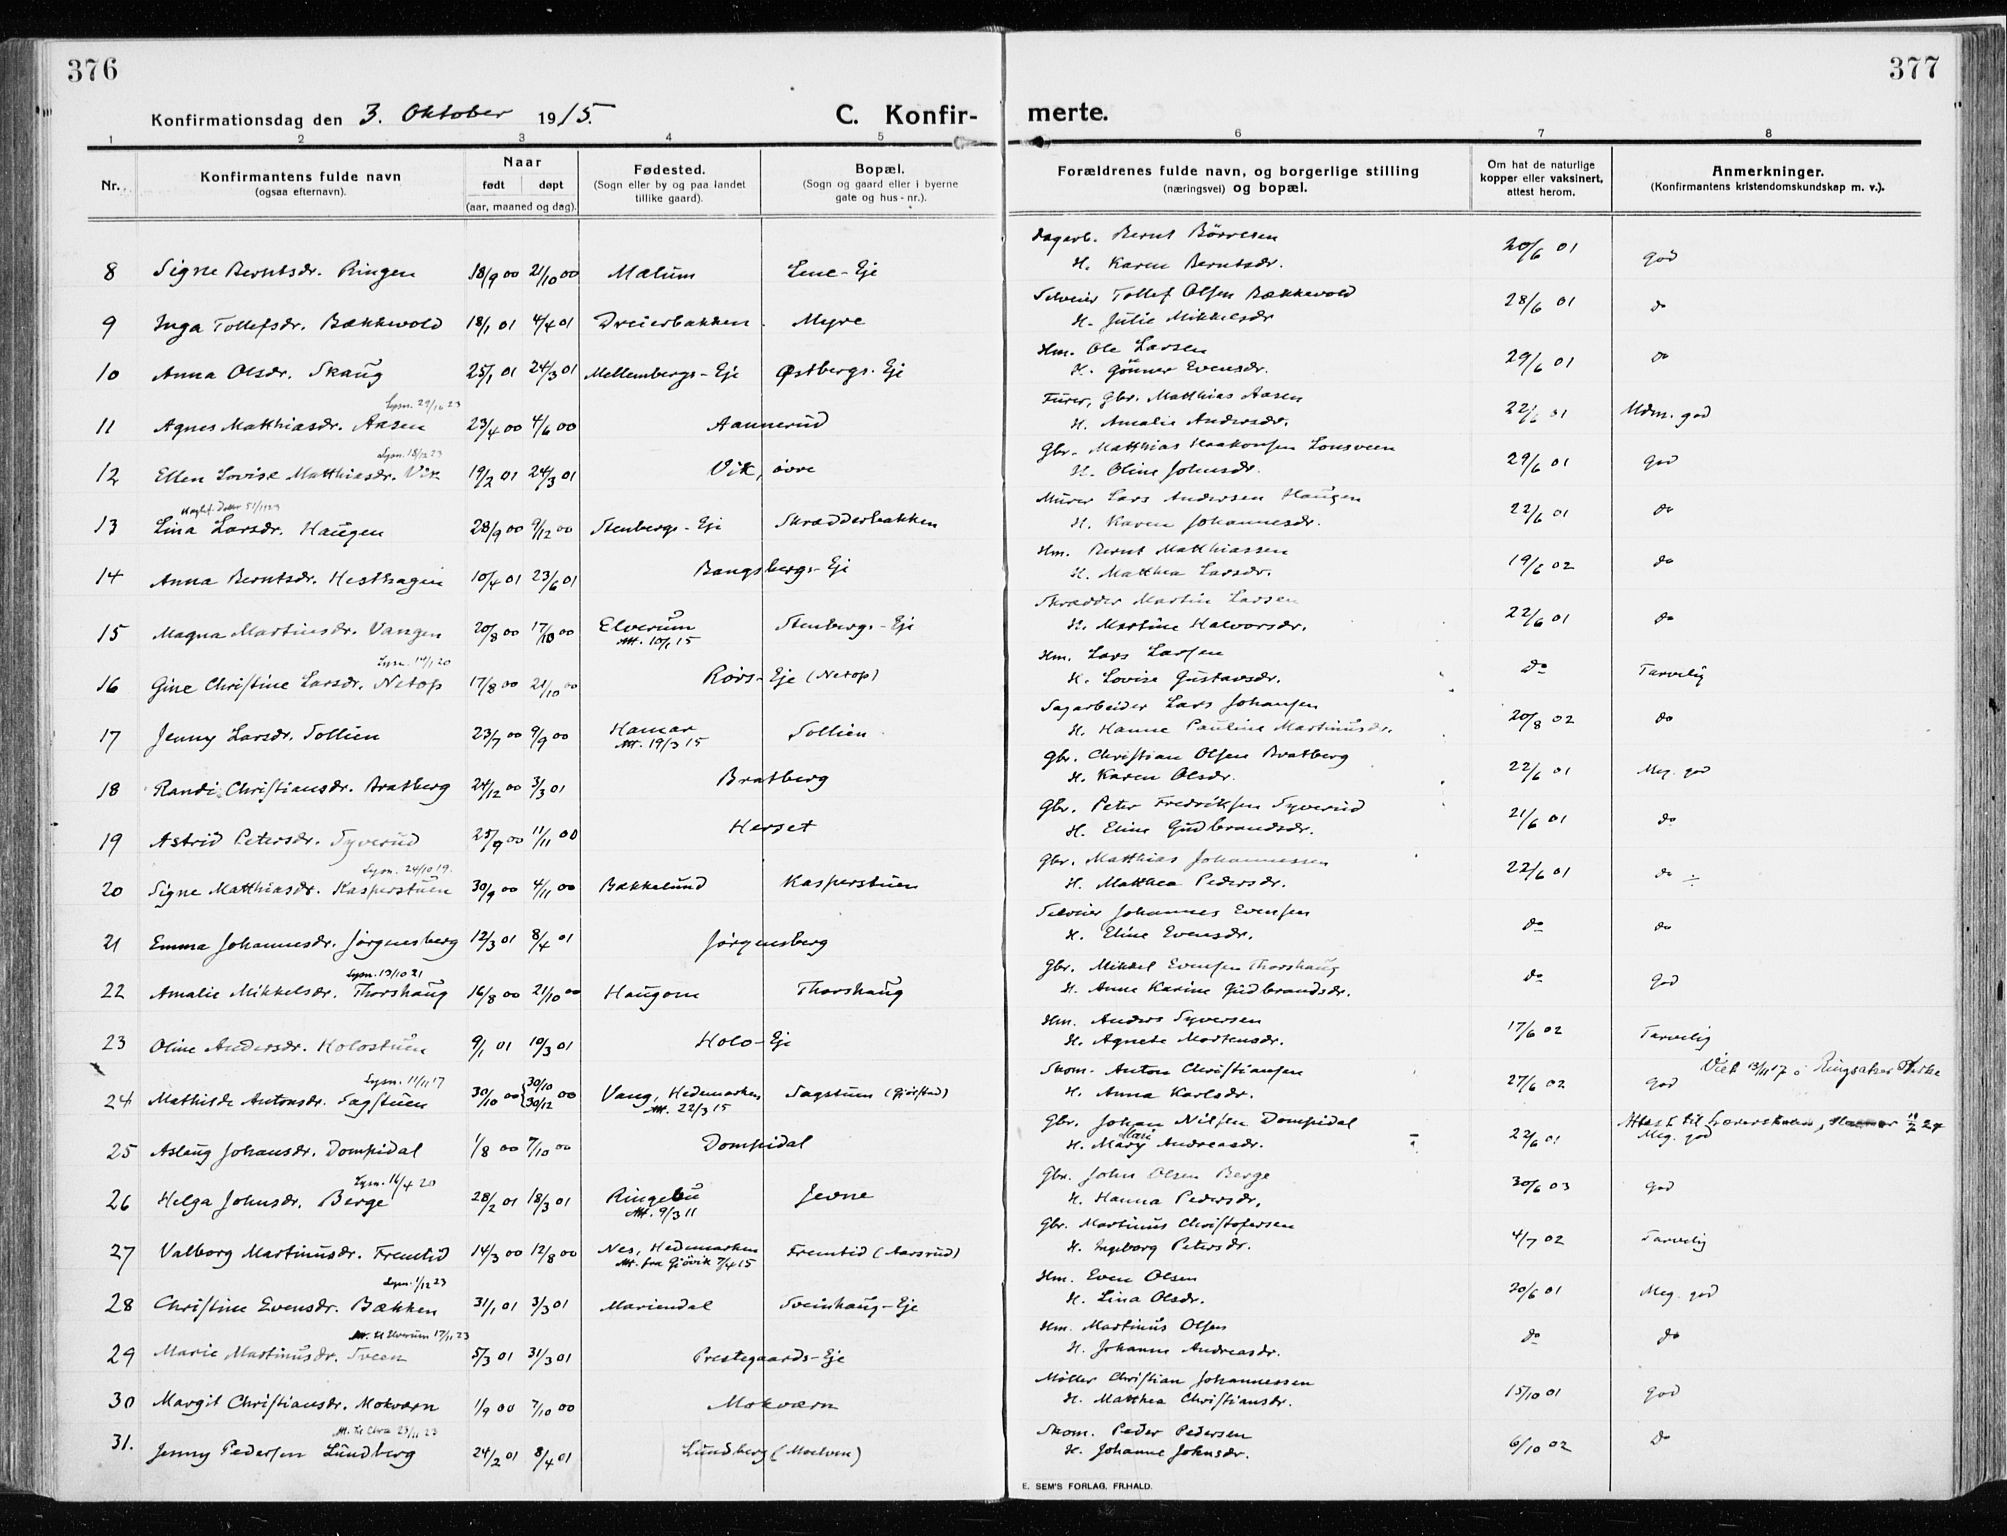 376
377
Konfirmationsdag den 3. Oktober 1915.
C. Konfirmerte.
1 2 3 4 5 6 7 8
Nr.
Konfirmantens fulde navn
(ogsaa efternavn).
Naar
født døpt
(aar, maaned og dag).
Fødested.
(Sogn eller by og paa landet
tillike gaard).
Bopæl.
(Sogn og gaard eller i byerne
gate og hus-nr.).
Forældrenes fulde navn, og borgerlige stilling
(næringsvei) og bopæl.
Om hat de naturlige
kopper eller vaksinert,
attest herom.
Anmerkninger.
(Konfirmantens kristendomskundskap m. v.).
Dagarb. Bernt Börresen
8 Signe Berntsdr. Ringen 18/9 00 21/10 00 Mælum Lene-Eje H. Karen Berntsdr. 20/6 01 god
Selveier Tollef Olsen Bækkevold
9 Inga Tollefsdr. Bækkevold 18/1 01 4/4 01 Dreierbakken Myre H. Julie Mikkelsdr 28/6 01 do
Hm. Ole Larsen
10 Anna Olsdr. Skaug 25/1 01 24/3 01 Mellembergs-Eje Østbergs-Eje H. Gunner Evensdr. 29/6 01 do
Lysn. 29/10 23
Furer, Gbr. Matthias Aasen
11 Agnes Matthiasdr. Aasen 23/4 00 4/6 00 Aannerud H. Amalie Andersdr. 22/6 01 Udm. god
Lysn. 18/12 23
Gbr. Matthias Haakonsen Lonsveen
12 Ellen Lovise Matthiasdr. Vik 19/2 01 24/3 01 Vik, øvre H. Oline Johnsdr. 29/6 01 God
Murer Lars Andersen Haugen
13 Lina Larsdr. Haugen 28/9 00 9/12 00 Stenbergs-Eje Skrædderbakken H. Karen Johannesdr. 22/6 01 do
Hm. Bernt Matthiassen
14 Anna Berntsdr. Hesthagen 10/4 01 23/6 01 Bangsbergs-Eje H. Matthea Larsdr. 19/6 02 do
Skrædder Martin Larsen
15 Magna Martinsdr. Vangen 20/8 00 17/10 00 Elverum Stenbergs-Eje H. Martine Halvorsdr. 22/6 01 do
Att. 10/1 15
Lysn. 14/1 20
Hm. Lars Larsen
16 Gine Christine Larsdr. Netop 17/8 00 21/10 00 Rörs-Eje (Netop) H. Lovise Gustavsdr. do Tarvelig
Sagarbeider Lars Johansen
17 Jenny Larsdr. Sollien 23/7 00 9/9 00 Hamar Sollien H. Hanne Pauline Martinusdr. 20/8 02 do
Att. 19/3 15
Gbr. Christian Olsen Bratberg
18 Randi Christiansdr. Bratberg 24/12 00 3/3 01 Bratberg H. Karen Olsdr. 22/6 01 Meg. god
Gbr. Peter Fredriksen Syverud
19 Astrid Petersdr. Syverud 25/9 00 11/11 00 Herset H. Eline Gudbrandsdr. 21/6 01 do
Lysn. 24/10 19.
Gbr. Matthias Johannessen
20 Signe Matthiasdr. Kasperstuen 30/9 00 4/11 00 Bækkelund Kasperstuen H. Matthea Pedersdr. 22/6 01 do ÷
Selveier Johannes Evensen
21 Emma Johannesdr. Jörgensberg 12/3 01 8/4 01 Jörgensberg H. Eline Evensdr. do do
Lysn. 13/10 21
Gbr. Mikkel Evensen Thorshaug
22 Amalie Mikkelsdr. Thorshaug 16/8 00 21/10 00 Haugom Thorshaug H. Anne Karine Gudbrandsdr. do God
Hm. Anders Syversen
23 Oline Andersdr. Holostuen 9/1 01 10/3 01 Holo-Eje H. Agnete Mortensdr. 17/6 02 Tarvelig
Lysn. 11/11 17
Skom. Anton Christiansen
Viet 13/11 17 i Ringsaker Kirke
24 Mathilde Antonsdr. Sagstuen 30/10 00 {30/10 30/12 00 Vang, Hedemarken Sagstuen (Gjörstad) H. Anna Karlsdr. 27/6 02 God
Att. 22/3 15
Gbr. Johan Nilsen Dompidal
Attest til Lærerskolen, Hamar 18/2 24
25 Aslaug Johansdr. Dompidal 1/8 00 7/10 00 Dompidal H. Mary Andreasdr. 22/6 01 Meg. god
Mari
Lysn. 16/4 20
Gbr. John Olsen Berge
26 Helga Johnsdr. Berge 28/2 01 18/3 01 Ringebu Jevne H. Hanna Pedersdr. 30/6 03 God
Att. 9/3 11
Gbr. Martinus Christofersen
27 Valborg Martinusdr. Fremtid 14/3 00 12/8 00 Nes, Hedemarken Fremtid (Aasrud) H. Ingeborg Petersdr. 4/7 02 Tarvelig
Att. fra Gjövik 7/4 15
Lysn. 1/12 23
Hm. Even Olsen
28 Christine Evensdr. Bækken 31/1 01 3/3 01 Mariendal Sveinhaug-Eje H. Lina Olsdr. 20/6 01 Meg. god
Att. til Elverum 17/11 23
Hm. Martinus Olsen
29 Marie Martinusdr. Sveen 5/3 01 31/3 01 Prestegaards-Eje H. Johanne Andreasdr. do do
Möller Christian Johannessen
30 Margit Christiansdr. Mokværn 1/9 00 7/10 00 Mokværn H. Matthea Christiansdr. 15/10 01 God
Att. til Chra 23/11 23
Skom. Peder Pedersen
31. Jenny Pedersen Lundberg 24/2 01 8/4 01 Lundberg (Moelven) H. Johanne Johnsdr. 6/10 02 do
E. SEM'S FORLAG, FR.HALD.